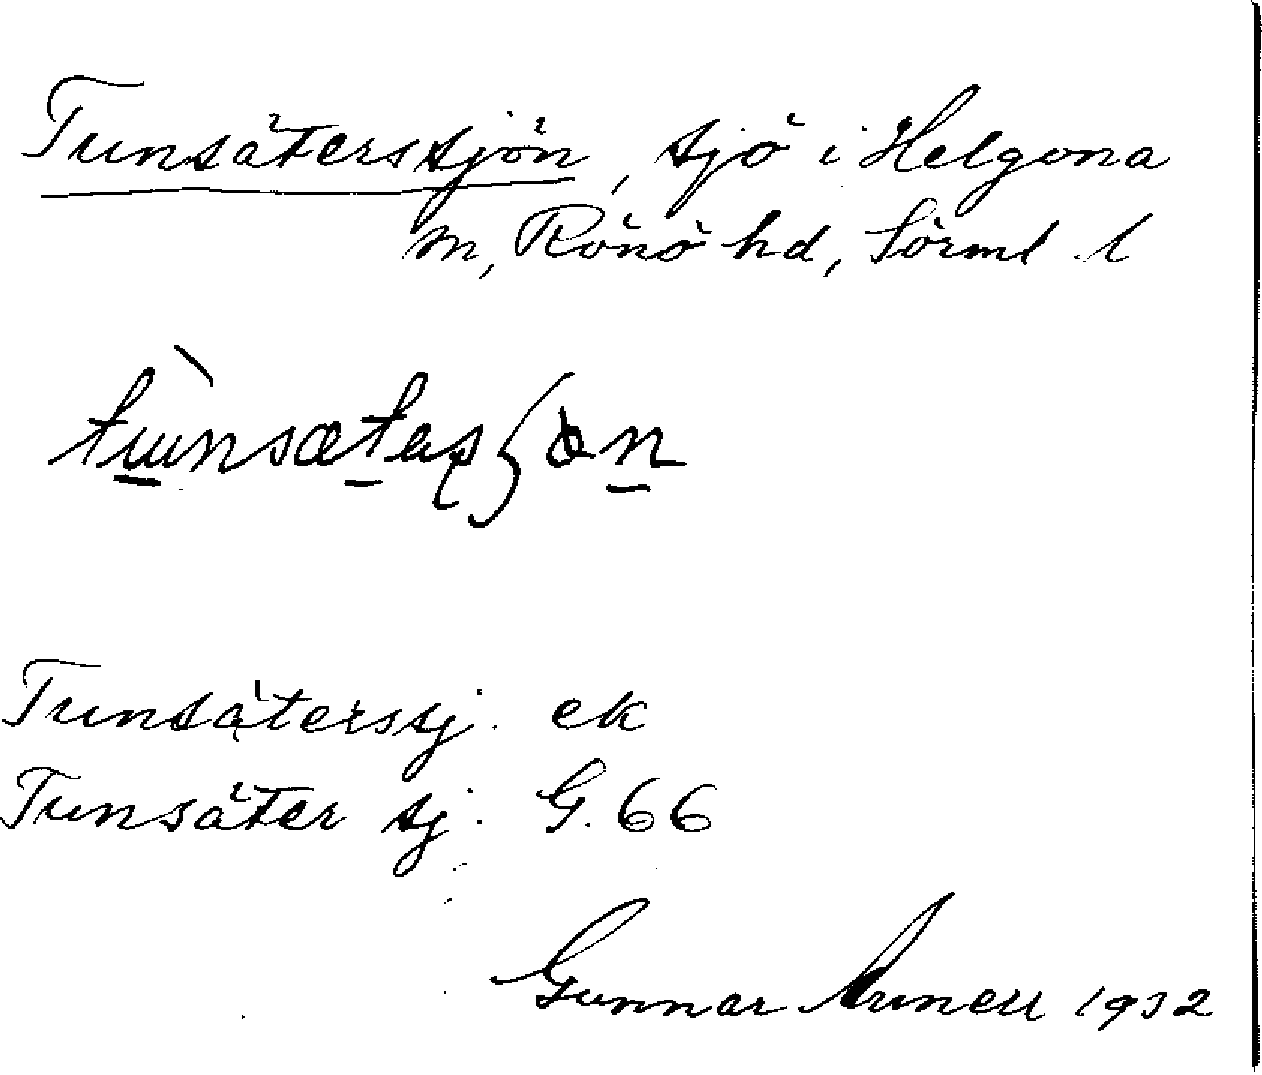 Tunsäterssjön, sjö i Helgona
sn, Rönö hd, Sörml l
Tunsäterssj. ek
Tunsäter sj. G. 66
Gunnar Arnell 1932